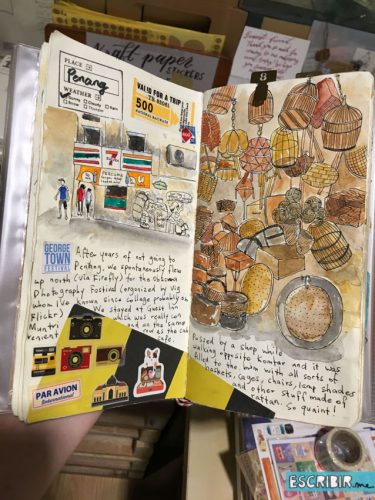 Kraft paper
STICKERS
PLACE
Penang
WEATHER
Sunny Cloudy Rain
Snow Thunder
VALID FOR A TRIP
TO SEOUL
500
8
GEORGE
TOWN
FESTIVAL
After years of not going to
Penang, we spontaneously flew
up north (via Firefly) for the Obscura
Photography Festival (organized by Vig
whom I've known since college probably on
Flickr). We stayed at Guest Inn
Muntri which was really con
venient and on the same
row as the
cafe.
PAR AVION
International
Passed by a shop while
walking opposite Komtar and it was
filled to the brim with all sorts of
baskets, cages, chairs, lamp shades
and other stuff made of
rattan. So quaint!
ESCRIBIR.me